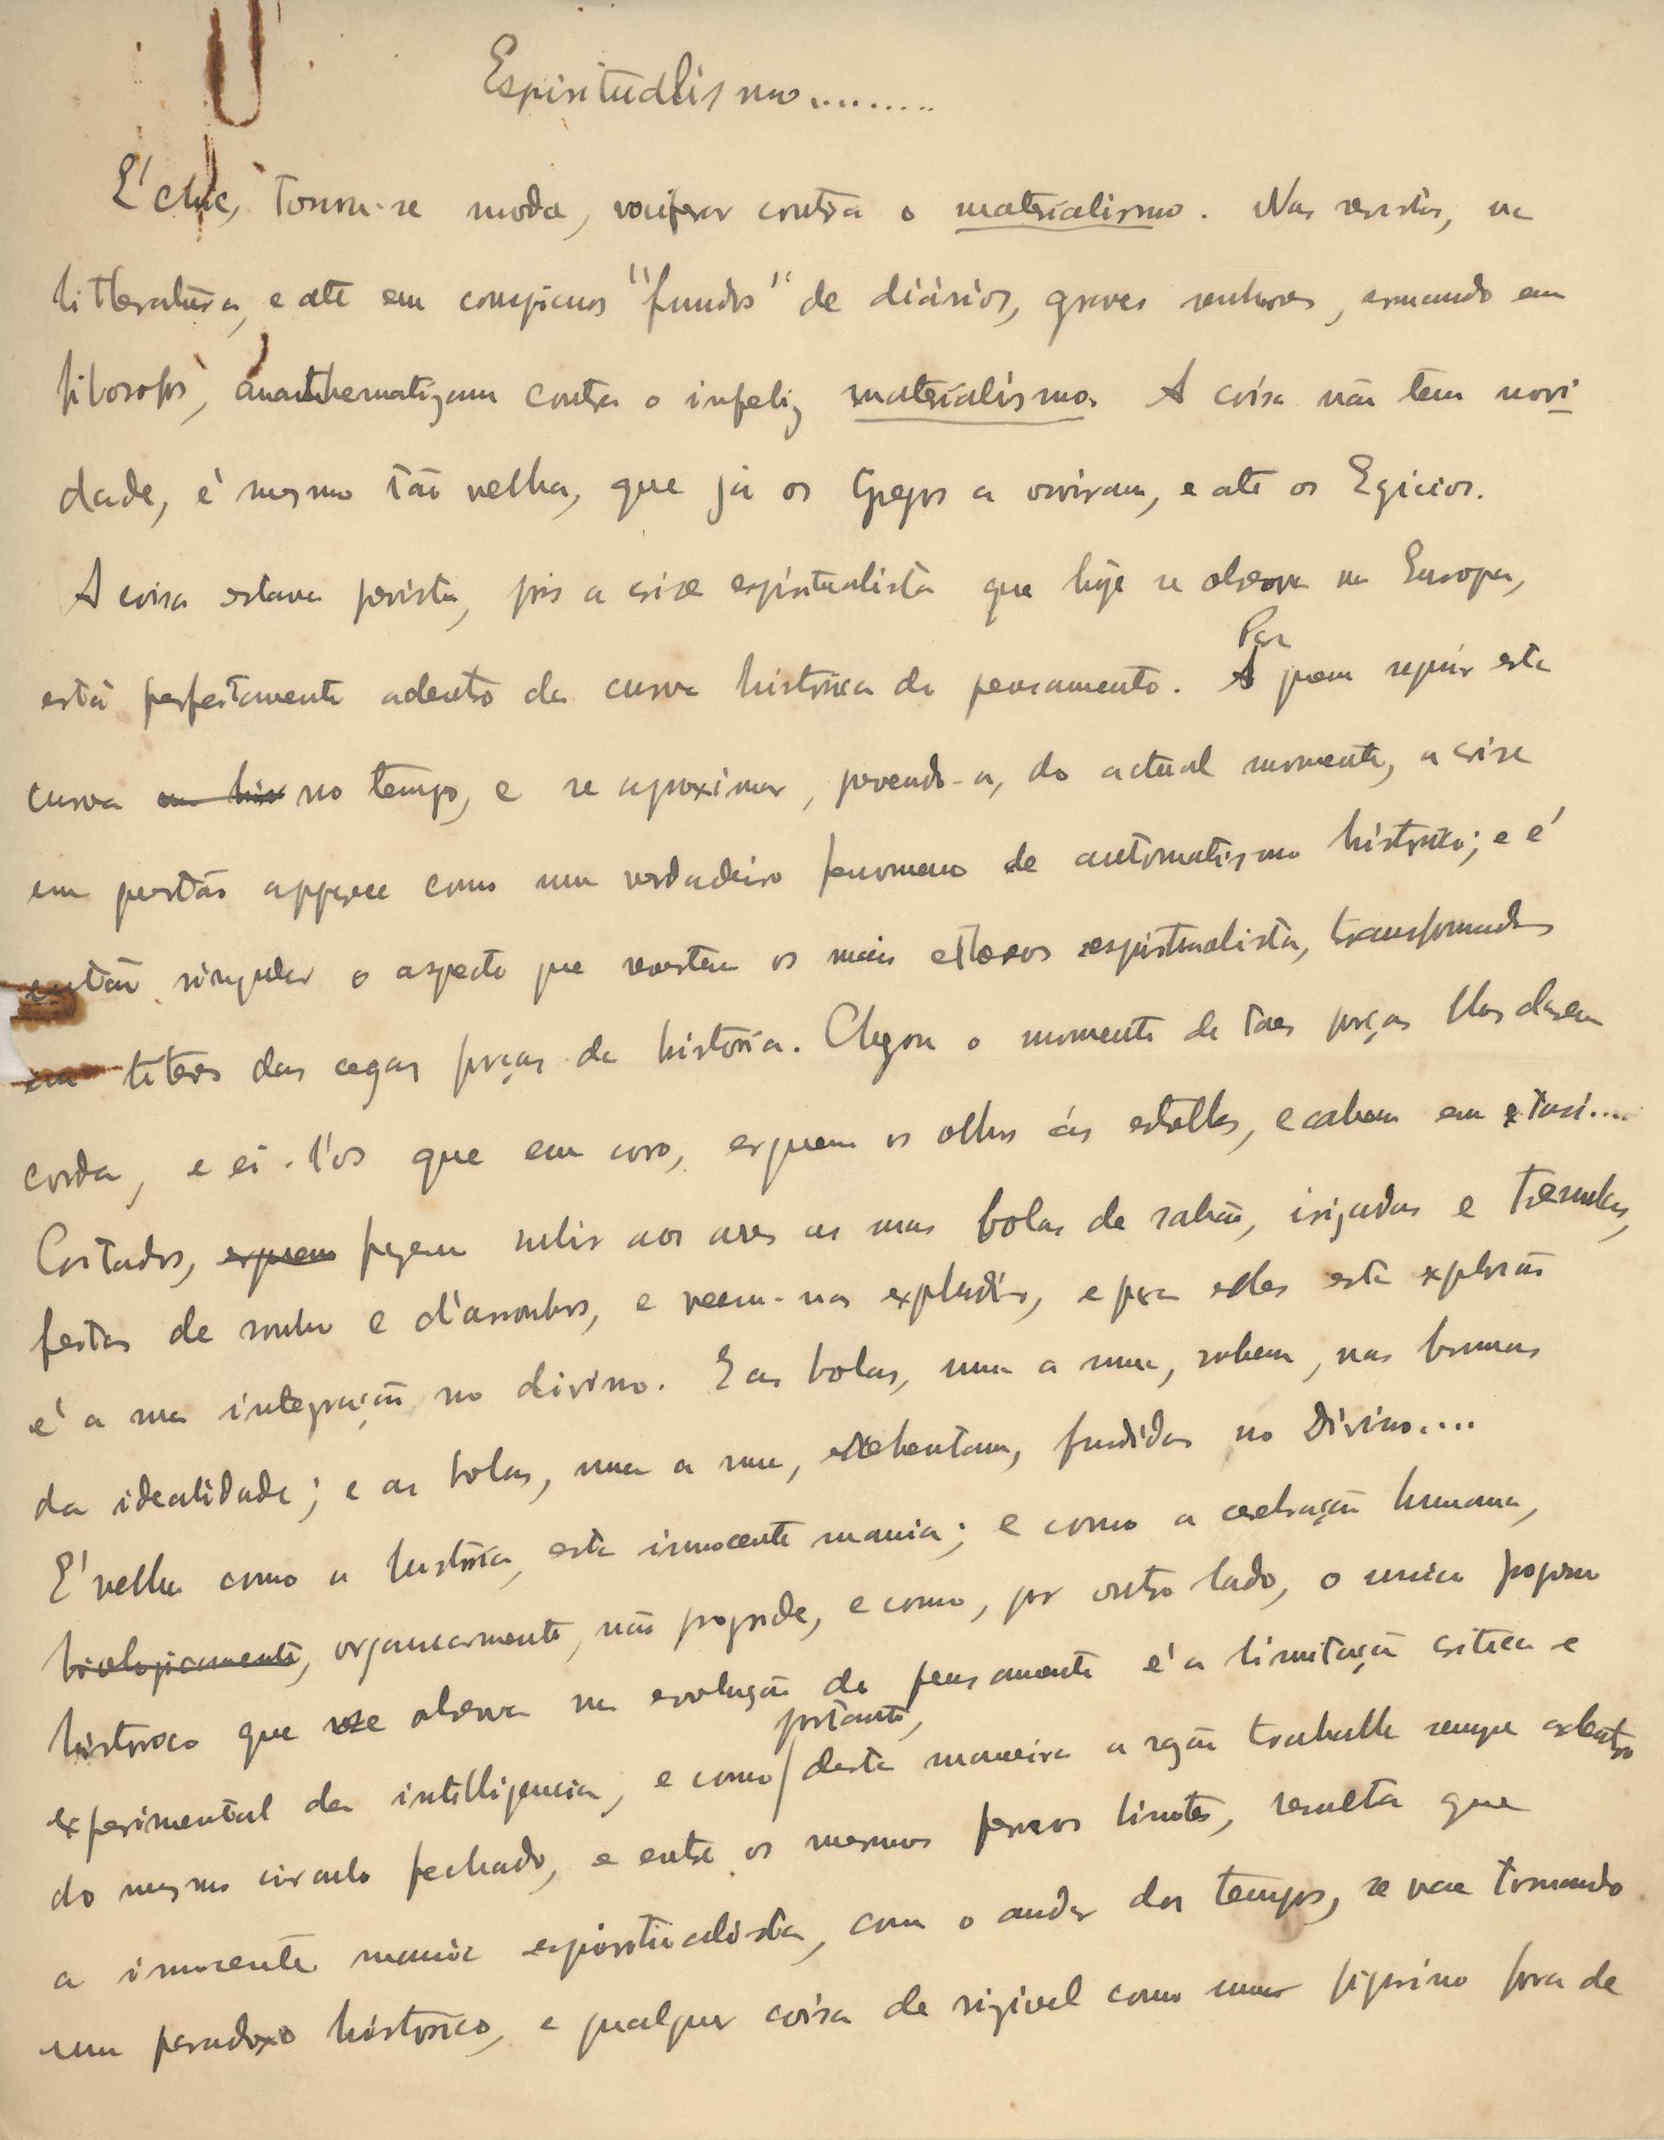 Espiritualismo.........
E' chic, tornou-se moda, vociferar contra o materialismo. Nas revistas, na
litteratura, e até em conspicuos "fundos" de diários, graves senhores, armando em
filosofos, anathematizam contra o infeliz materialismo. A coisa não tem novi
dade, é mesmo tão velha, que já os Gregos a viviram, e até os Egicios.
A coisa estava prevista, pois a crise espiritualista que hoje se observa na Europa,
está perfeitamente adentro da curva histórica do pensamento. Para quem seguir esta
curva no tempo, e se aproximar, prevendo-a, do actual momento, a crise
em questão apparece como um verdadeiro fenomeno de automatismo histórico; e é
então singular o aspecto que revestem os mais espiritualista, transformados
em titeres das cegas forças da história. Chegou o momento de taes forças lhes darem
corda, e ei-l'os que em coro, erguem os olhos ás estrellas, e cahem em extasi....
Coitados, fazem subir aos ares as suas bolas de sabão, irizadas e tremulas,
feitas de sonho e d'assombros, e veem-nas explodir, e para elles esta explosão
é a sua integração no divino. E as bolas, uma a uma, sobem, nas brumas
da idealidade; e as bolas, uma a uma, rebentam, fundidas no Divino....
E' velha como a história, esta innocente mania; e como a cerebração humana,
organicamente, não progride, e como, por outro lado, o unico progresso
historico que se observa na evolução do pensamento é a limitação critica e
experimental da intelligencia, e como, portanto, desta maneira a razão trabalha sempre adentro
do mesmo circulo fechado, e entre os mesmos limites, resulta que
a innocente mania espiritualista, com o andar dos tempos, se vae tornando
um paradoxo histórico, e qualquer coisa de rizivel como um figurino fora de